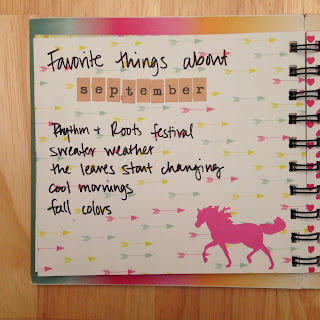 Favorite things about
september
Rhythm + Roots festival
sweater weather
the leaves start changing
cool mornings
fall colors